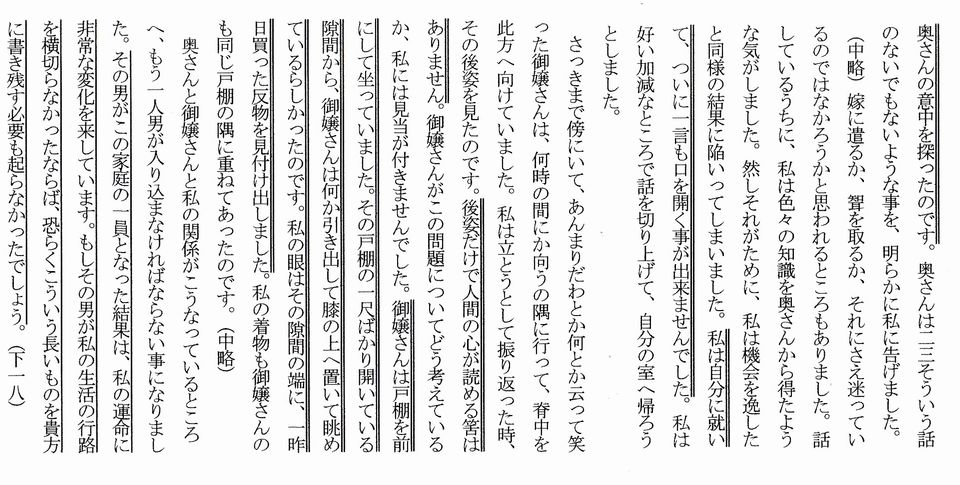 奥さんの意中を探ったのです。奥さんは二三そういう話
のないでもないような事を、明らかに私に告げました。
（中略）嫁に遣るか、聟を取るか、それにさえ迷ってい
るのではなかろうかと思われるところもありました。話
しているうちに、私は色々の知識を奥さんから得たよう
な気がしました。然しそれがために、私は機会を逸した
と同様の結果に陥いってしまいました。私は自分に就い
て、ついに一言も口を開く事が出来ませんでした。私は
好い加減なところで話を切り上げて、自分の室へ帰ろう
としました。
さっきまで傍にいて、あんまりだわとか何とか云って笑
った御嬢さんは、何時の間にか向うの隅に行って、脊中を
此方へ向けていました。私は立とうとして振り返った時、
その後姿を見たのです。後姿だけで人間の心が読める筈は
ありません。御嬢さんがこの問題についてどう考えている
か、私には見当が付きませんでした。御嬢さんは戸棚を前
にして坐っていました。その戸棚の一尺ばかり開いている
隙間から、御嬢さんは何か引き出して膝の上へ置いて眺め
ているらしかったのです。私の眼はその隙間の端に、一昨
日買った反物を見付け出しました。私の着物も御嬢さんの
も同じ戸棚の隅に重ねてあったのです。（中略）
奥さんと御嬢さんと私の関係がこうなっているところ
へ、もう一人男が入り込まなければならない事になりまし
た。その男がこの家庭の一員となった結果は、私の運命に
非常な変化を来しています。もしその男が私の生活の行路
を横切らなかったならば、恐らくこういう長いものを貴方
に書き残す必要も起らなかったでしょう。（下一八）